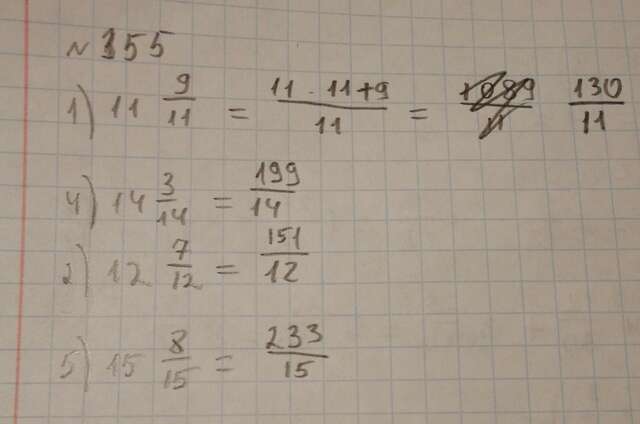 № 355
1) 11 9/11 = 11 · 11+9/11 = 130/11
4) 14 3/14 = 199/14
2) 12 7/12 = 151/12
5) 15 8/15 = 233/15